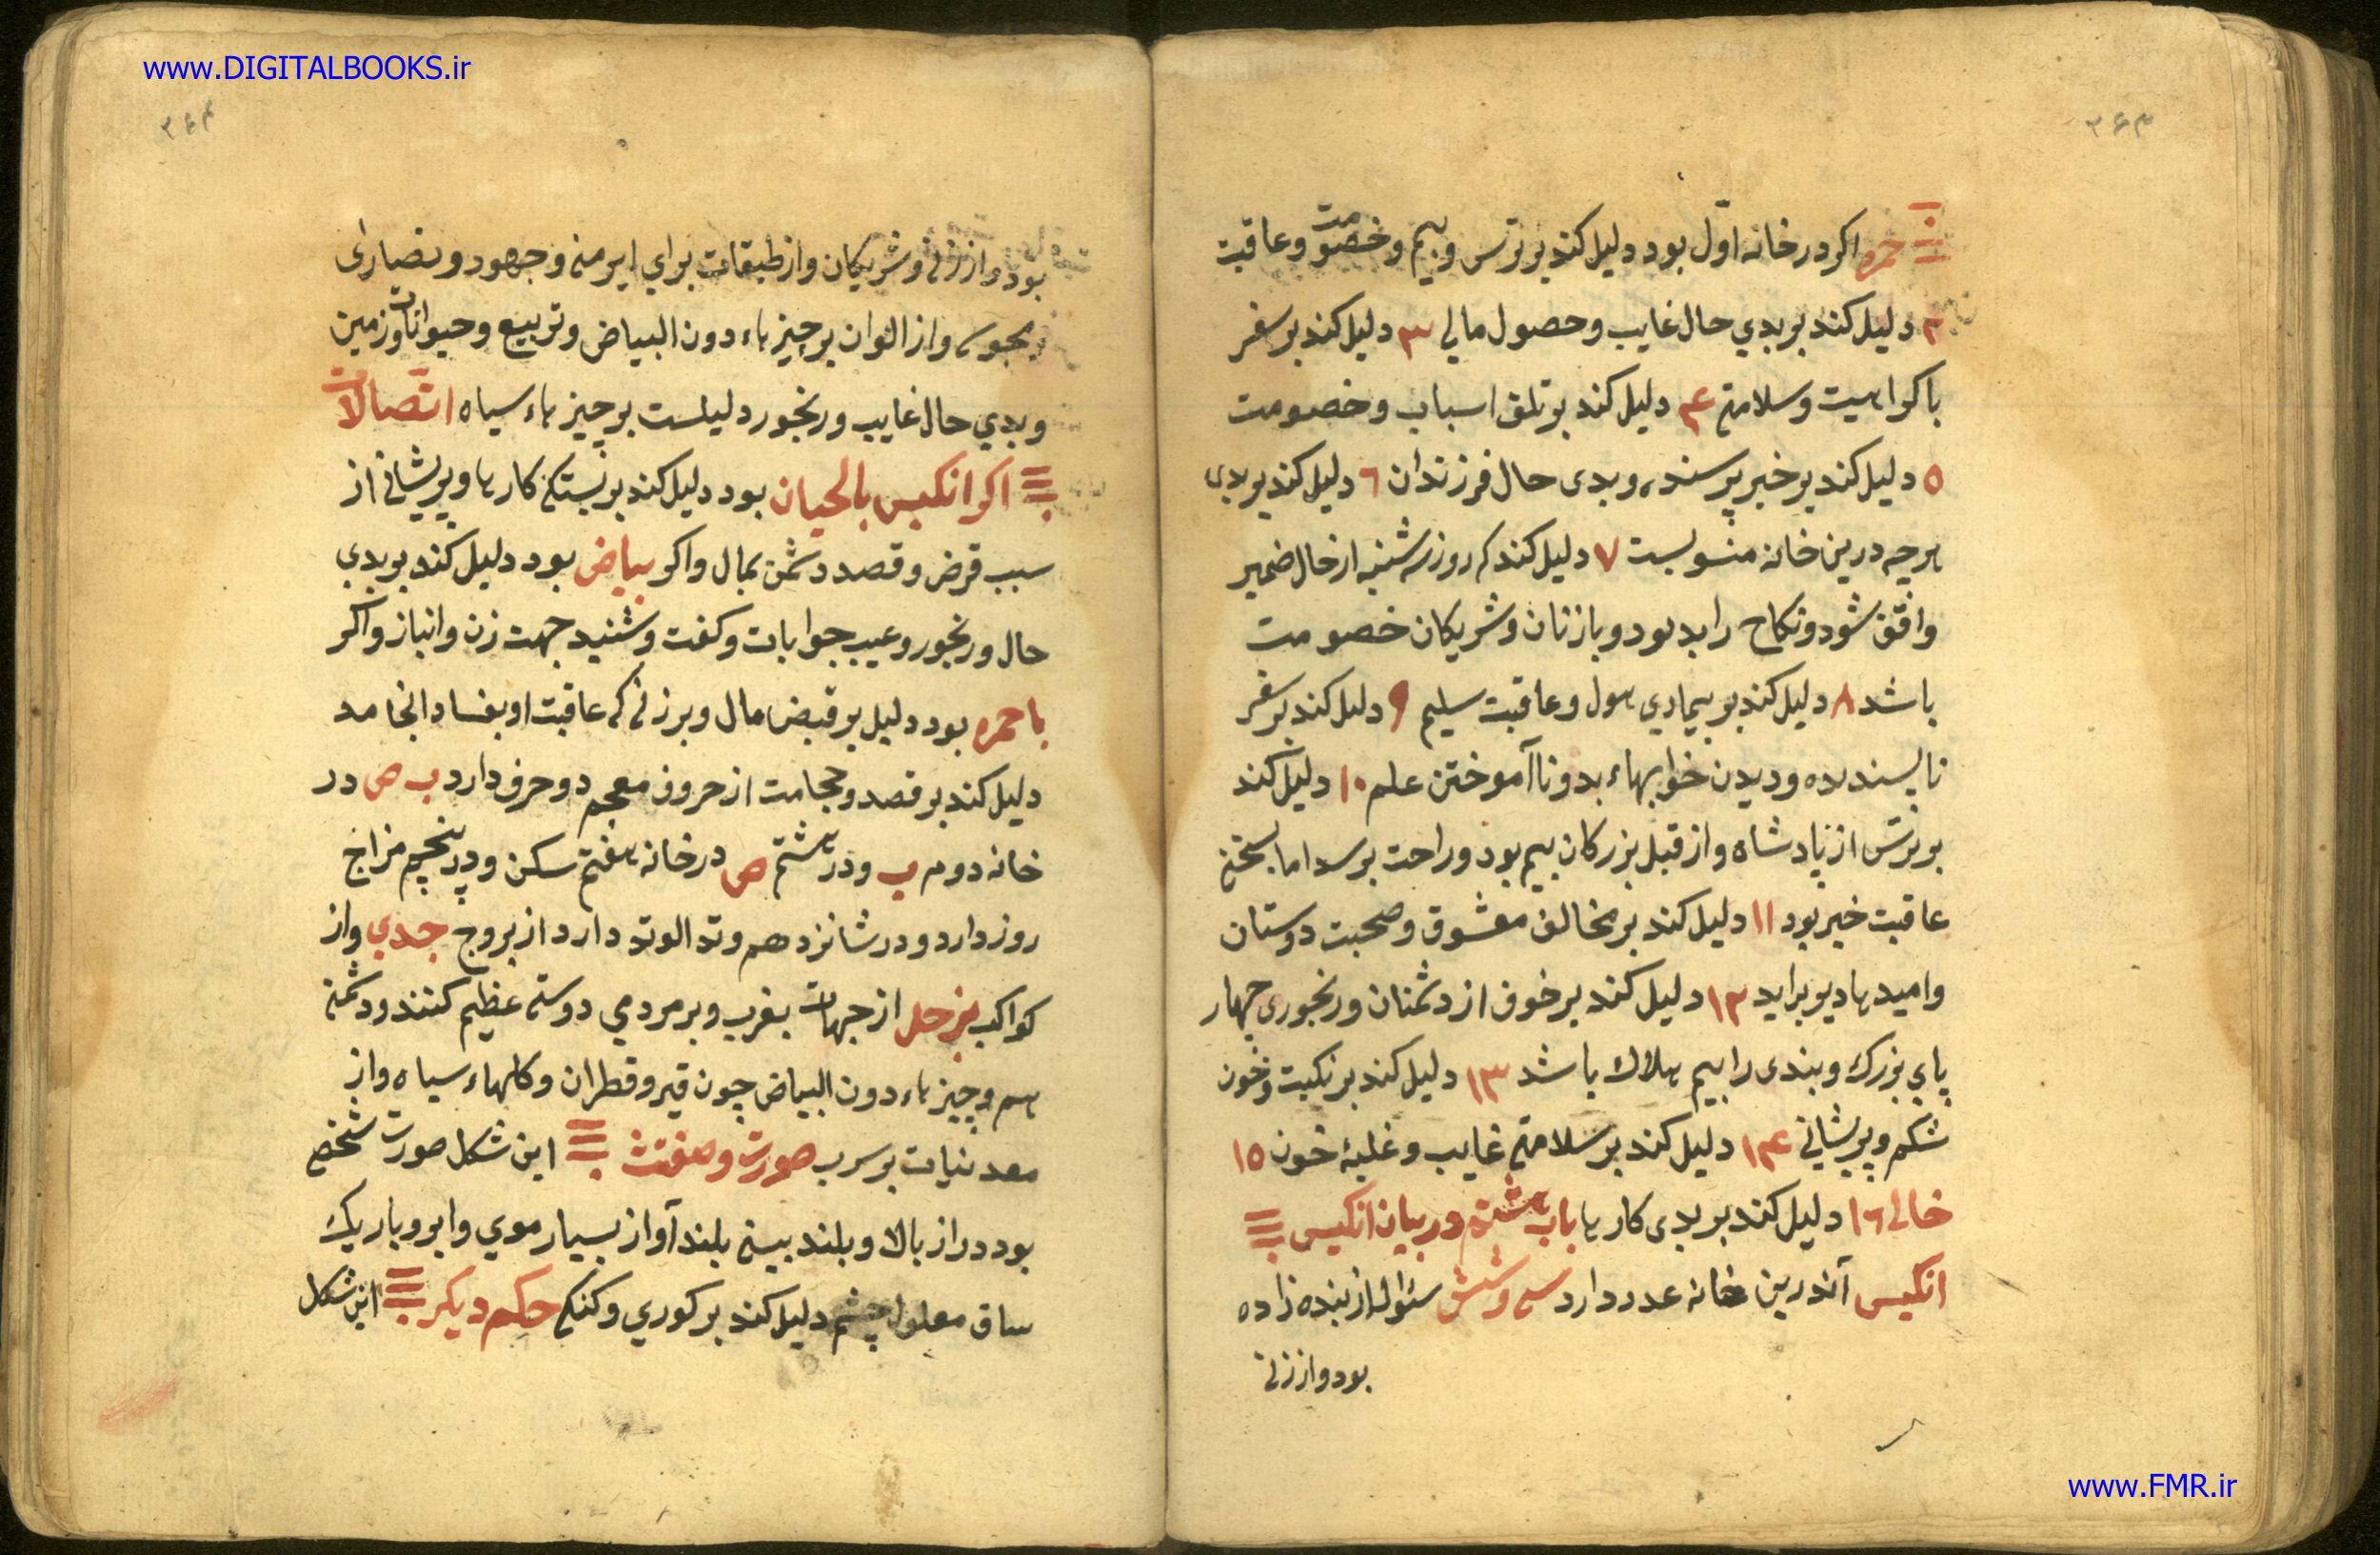 www.DIGITALBOOKS.ir
۳۶۳
حمره اکر در خانه اوّل بود دلیل کند بر ترس و بیم و خصومت و عاقبت
۲ دلیل کند بر بدي حال غایب و حصول مالی ۳ دلیل کند بر سفر
با کراهیت و سلامتی ۴ دلیل کند بر تلف اسباب و خصومت
۵ دلیل کند بر خبر پرسنده و بدی حال فرزندان ٦ دلیل کند بر بدی
هرچه درین خانه منسوبست ۷ دلیل کند که روز سه شنبه از حال ضمیر
واقف شود و نکاح را بد بود و با زنان و شریکان خصومت
باشد ۸ دلیل کند بر بیماري هول و عاقبت سلیم ۹ دلیل کند بر سفر
ناپسندیده و دیدن خوابهاء بد و نا آموختن علم ۱۰ دلیل کند
بر ترس از پادشاه و از قبل بزرکان بیم بود و راحت برسد اما بسختی
عاقبت خیر بود ۱۱ دلیل کند بر مخالف معشوق و صحبت دوستان
و امیدها دیر براید ۱۲ دلیل کند بر خوف از دشمنان و رنجوری چهار
پاي بزرک و بندی را بیم هلاک باشد ۱۳ دلیل کند بر نکبت و خون
شکم و پریشانی ۱۴ دلیل کند بر سلامتی غایب و غلبهٔ خون ۱۵
خالی ۱٦ دلیل کند بر بدی کارها باب هشتم در بیان انکیس
انکیس آندرین خانه عدد دارد سی و شش سئوال از بنده زاده
بود و از زنی
۳۶۴
بود و از زنی و شریکان و از طبقات براي ایرمنی و جهود و نصارای
و مجوس و از الوان بر چیزهاء دون البیاض و تربیع و حیوانات و زمین
و بدي حال غایب و رنجور دلیلست بر چیزهاء سیاه اتّصالات
اکر انکیس بالحیان بود دلیل کند بر بستکی کارها و پریشانی از
سبب قرض و قصد دشمن بمال و اکر بیاض بود دلیل کند بر بدي
حال و رنجور و عیب جوابات و کفت و شنید جهت زن و انباز و اکر
با حمره بود دلیل بر قبض مال و بر زنی که عاقبت او بفساد انجامد
دلیل کند بر فصد و حجامت از حروف معجم دو حرف دارد ب ص در
خانه دوم ب و در هشتم ص در خانه هفتم سکن و در پنجم مزاج
روز دارد و در شانزدهم وتد الوتد دارد از بروج جدي و از
کواکب بزحل از جهات بغرب و بر مردمي دوستی عظیم کنند و دشمنی
هم و چیزهاء دون البیاض چون قیر و قطران و کلهاء سیاه و از
معدنیات بر سرب صورت و صفتش این شکل صورت شخصی
بود دراز بالا و بلند بینی بلند آواز بسیار موي و ابرو باریک
ساق معلول چشم دلیل کند بر کوري و کنکی حکم دیکر این شکل
www.FMR.ir